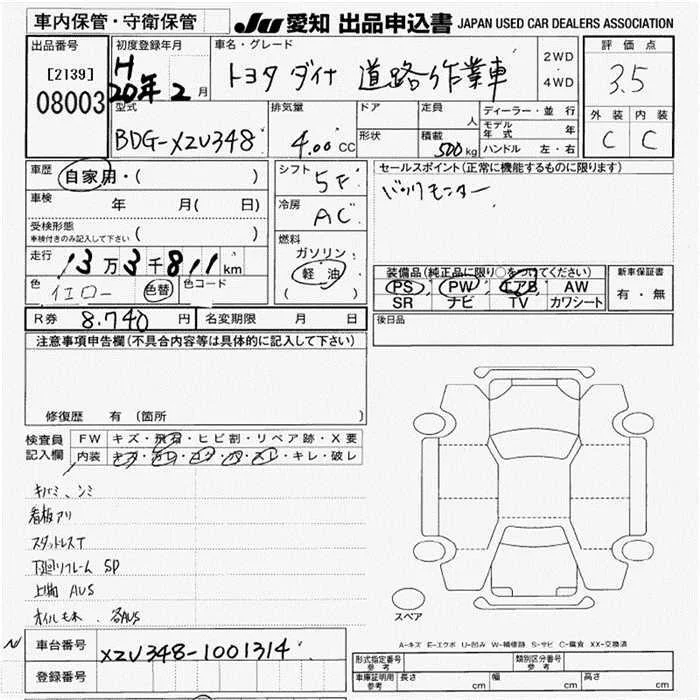 車内保管・守衛保管
JU 愛知 出品申込書 JAPAN USED CAR DEALERS ASSOCIATION
出品番号
[2139]
08003
初度登録年月
H 20年 2 月
車名・グレード
トヨタ ダイナ 道路作業車
2WD
4WD
評価点
3.5
型式
BDG-XZU348
排気量
4.00 CC
ドア
形状
定員 人
積載 500 kg
ディーラー・並行
モデル年式 年
ハンドル 左・右
外装 内装
C C
車歴 自家用・( )
車検 年 月( 日)
受検形態
車検付きのみ記入して下さい ( )
走行 13万3千811 km
色 イエロー 色替 色コード
シフト 5F
冷房 AC
燃料
ガソリン
軽油
( )
セールスポイント(正常に機能するものに限ります)
バックモニター
装備品(純正品に限り○をつけてください)
PS PW エアB AW
SR ナビ TV カワシート
新車保証書
有・無
R券 8.740 円 名変期限 月 日
後日品
注意事項申告欄(不具合内容等は具体的に記入して下さい)
修復歴 有(箇所 )
検査員記入欄
FW キズ・飛石・ヒビ割・リペア跡・X要
内装 キズ・汚レ・コゲ・穴・スレ・キレ・破レ
看板アリ
スタッドレスT
下廻りフレーム SP
上物 AUS
スペア
A-キズ E-エクボ U-凹み W-補修跡 S-サビ C-腐食 XX-交換済
車台番号 XZU348-1001314
登録番号
形式指定番号 参考
類別区分番号 参考
車庫証明用 参考 長さ cm 幅 cm 高さ cm